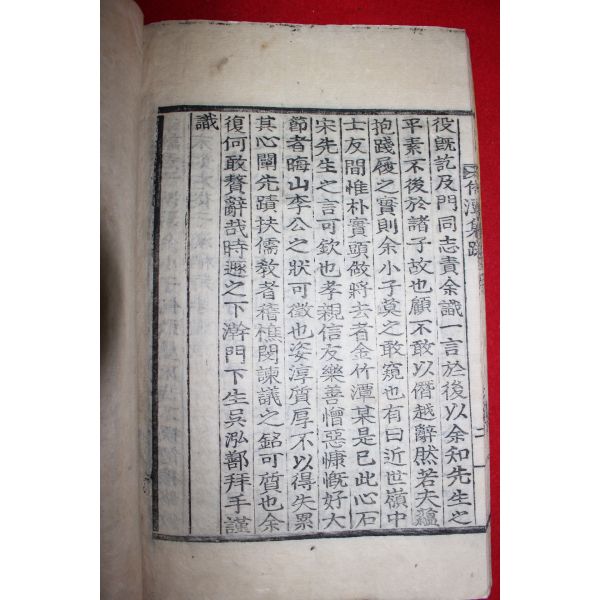 役旣訖及門同志責余識一言於後以余知先生之
平素不後於諸子故也顧不敢以僭越辭然若夫蘊
抱踐履之實則余小子莫之敢窺也有曰近世嶺中
士友間惟朴實頭做將去者金竹潭某是已此心石
宋先生之言可欽也孝親信友樂善憎惡慷慨好大
節者晦山李公之狀可徵也姿淳質厚不以得失累
其心闡先蹟扶儒敎者稽樵閔諫議之銘可質也余
復何敢贅辭哉時遯之下澣門下生吳泓鄯拜手謹
識
竹潭集跋